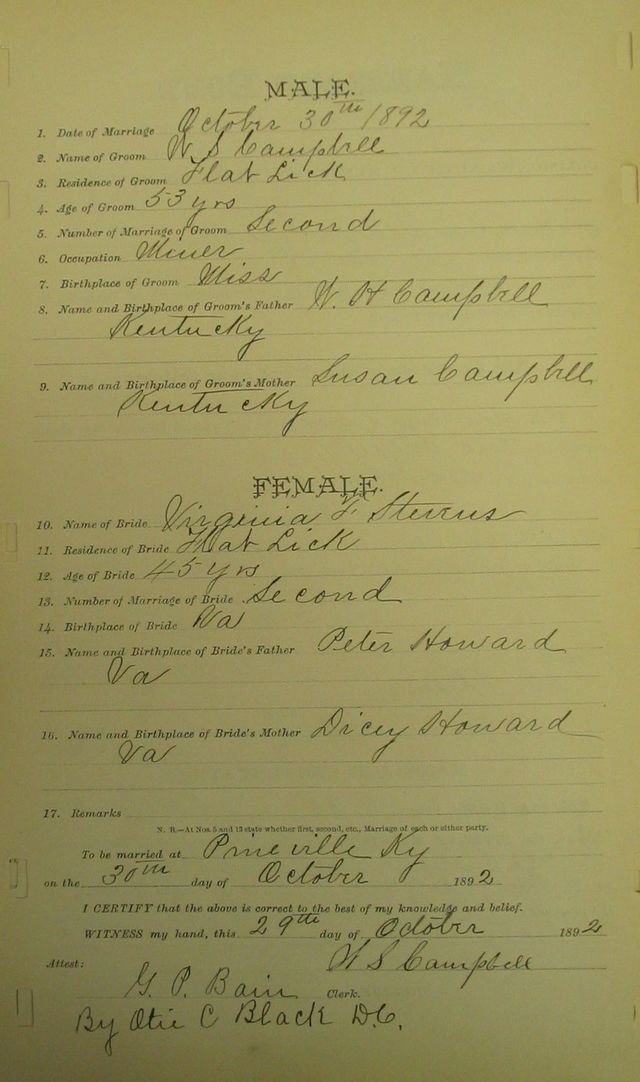 MALE.
1. Date of Marriage October 30th 1892
2. Name of Groom W S Campbell
3. Residence of Groom Flat Lick
4. Age of Groom 53 yrs
5. Number of Marriage of Groom Second
6. Occupation Miner
7. Birthplace of Groom Miss
8. Name and Birthplace of Groom's Father W. H Campbell
Kentucky
9. Name and Birthplace of Groom's Mother Susan Campbell
Kentucky
FEMALE.
10. Name of Bride Virginia F Stevens
11. Residence of Bride Flat Lick
12. Age of Bride 45 yrs
13. Number of Marriage of Bride Second
14. Birthplace of Bride Va
15. Name and Birthplace of Bride's Father Peter Howard
Va
16. Name and Birthplace of Bride's Mother Dicey Howard
Va
17. Remarks
N. B.—At Nos. 5 and 13 state whether first, second, etc., Marriage of each or either party.
To be married at Pineville Ky
on the 30th day of October 1892
I CERTIFY that the above is correct to the best of my knowledge and belief.
WITNESS my hand, this 29th day of October 1892
W S Campbell
Attest:
G. P. Bain Clerk.
By Otie C Black D.C.